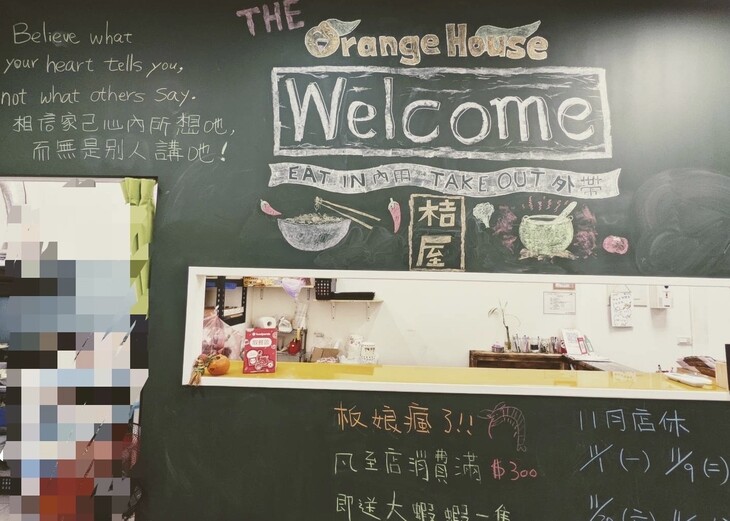 Believe what
your heart tells you,
not what others say.
相信家己心內所想吔,
而無是別人講吔!
THE
Orange House
Welcome
EAT IN 內用 TAKE OUT 外帶
桔
屋
板娘瘋了!!
凡至店消費滿 $300
即送大蝦蝦一隻
11月店休
11/1 (一) 11/9 (二)